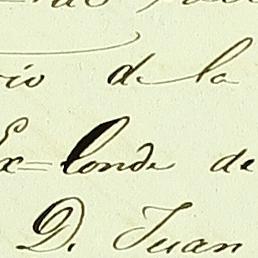 rio de la
Ex=Conde de
D. Juan